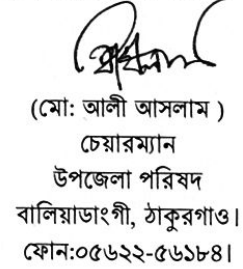 (মো: আলী আসলাম )
চেয়ারম্যান
উপজেলা পরিষদ
বালিয়াডাংগী, ঠাকুরগাঁও।
ফোন:০৫৬২২-৫৬১৮৪।